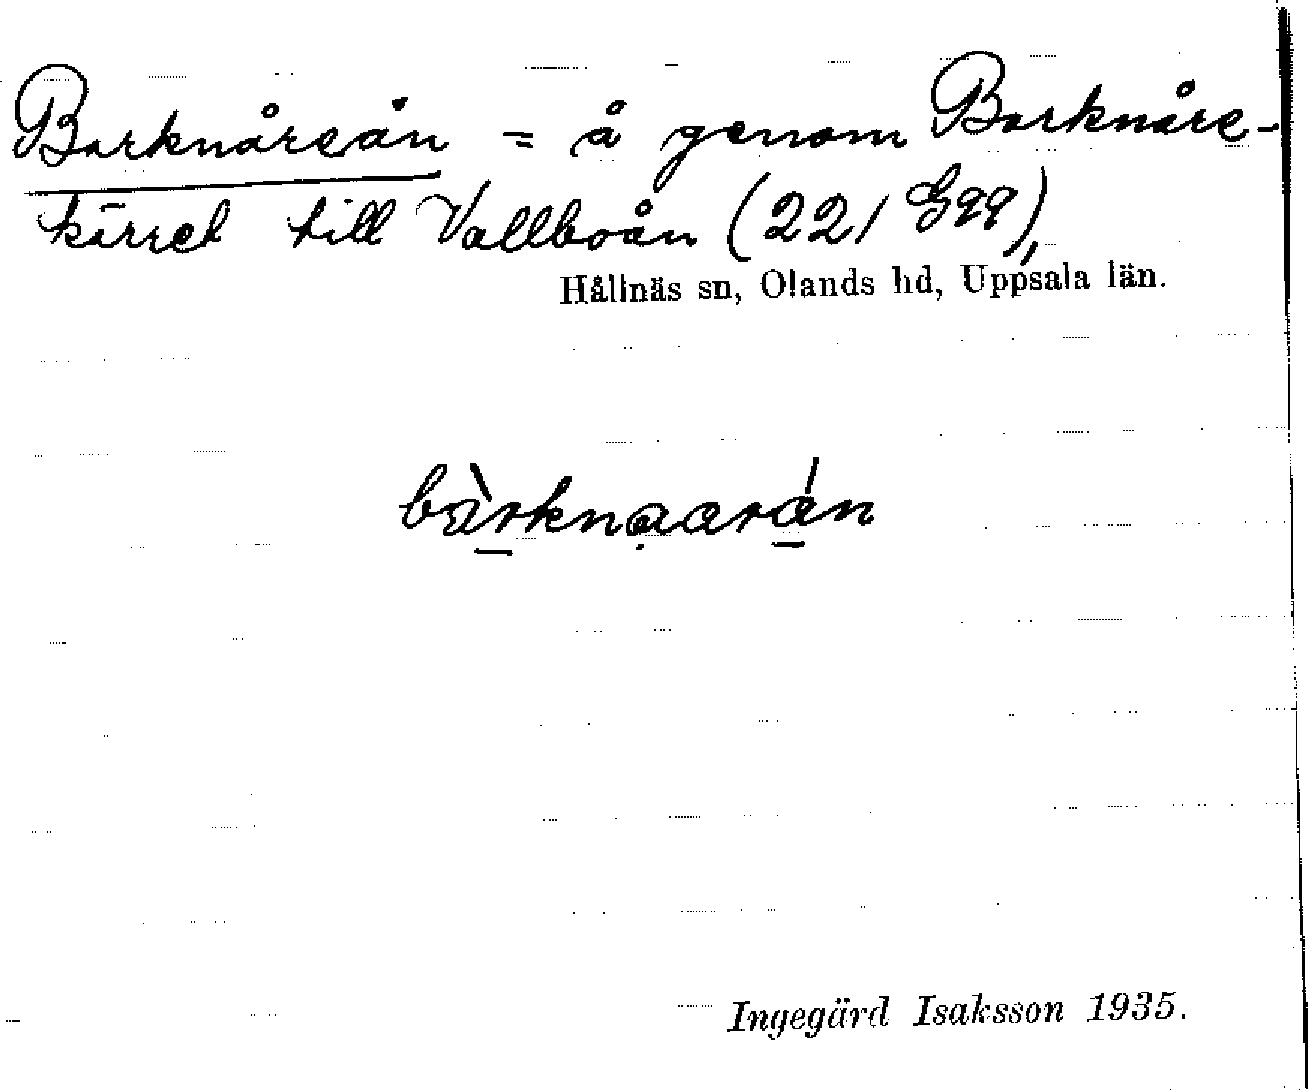 Barknåreån = å genom Barknåre-
kärret till Vallboån (221 Ggg),
Hållnäs sn, Olands hd, Uppsala län.
bàrknaarån
Ingegärd Isaksson 1935.